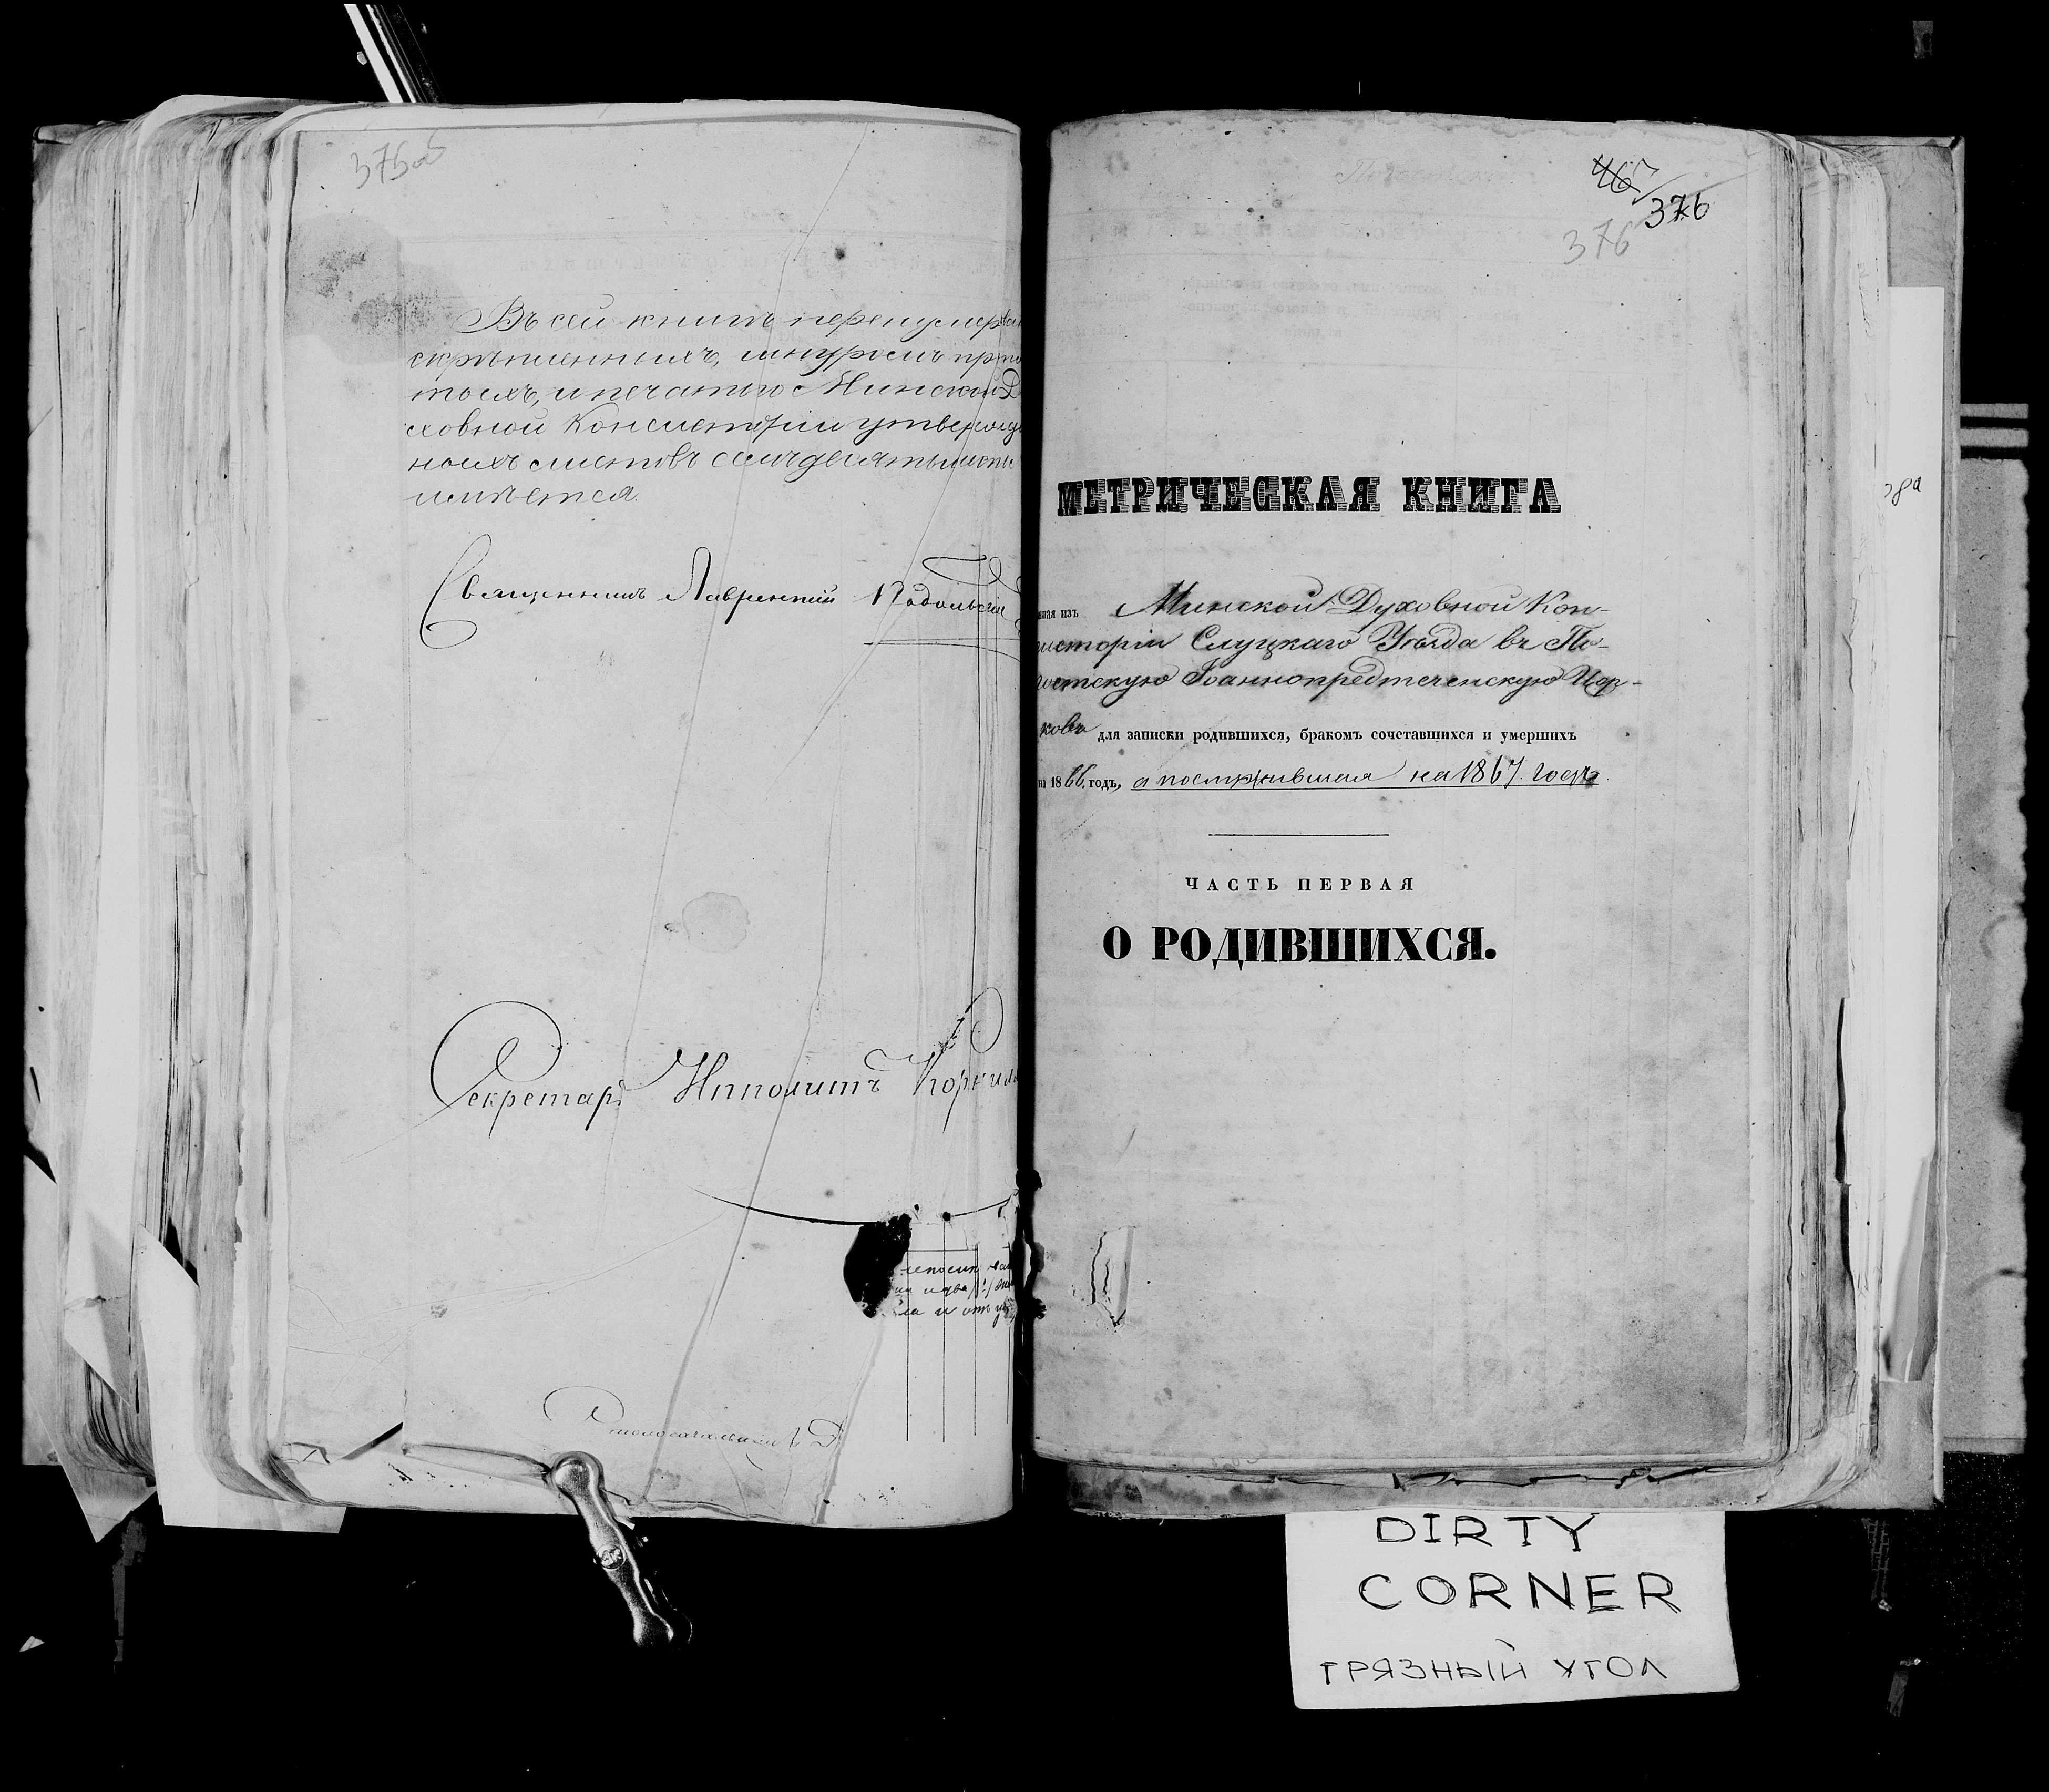 375об
Въ сей книгѣ перенумер
скрѣпленныхъ, шнуромъ пр
тыхъ, и печатью Минской Д
ховной Консисторіи утвержд
ныхъ листовъ семьдесятъ
имѣется.
Священникъ Лаврентій Подольскій
Секретарь Ипполитъ
Столоначальникъ
467
376
376
МЕТРИЧЕСКАЯ КНИГА
ная изъ Минской Духовной Кон-
систоріи Слуцкаго Уѣзда въ По-
гостскую Іоаннопредтеченскую Цер-
ковь для записи родившихся, бракомъ сочетавшихся и умершихъ
на 1866 годъ, а послужившая на 1867 годъ.
ЧАСТЬ ПЕРВАЯ
О РОДИВШИХСЯ.
DIRTY
CORNER
ГРЯЗНЫЙ УГОЛ